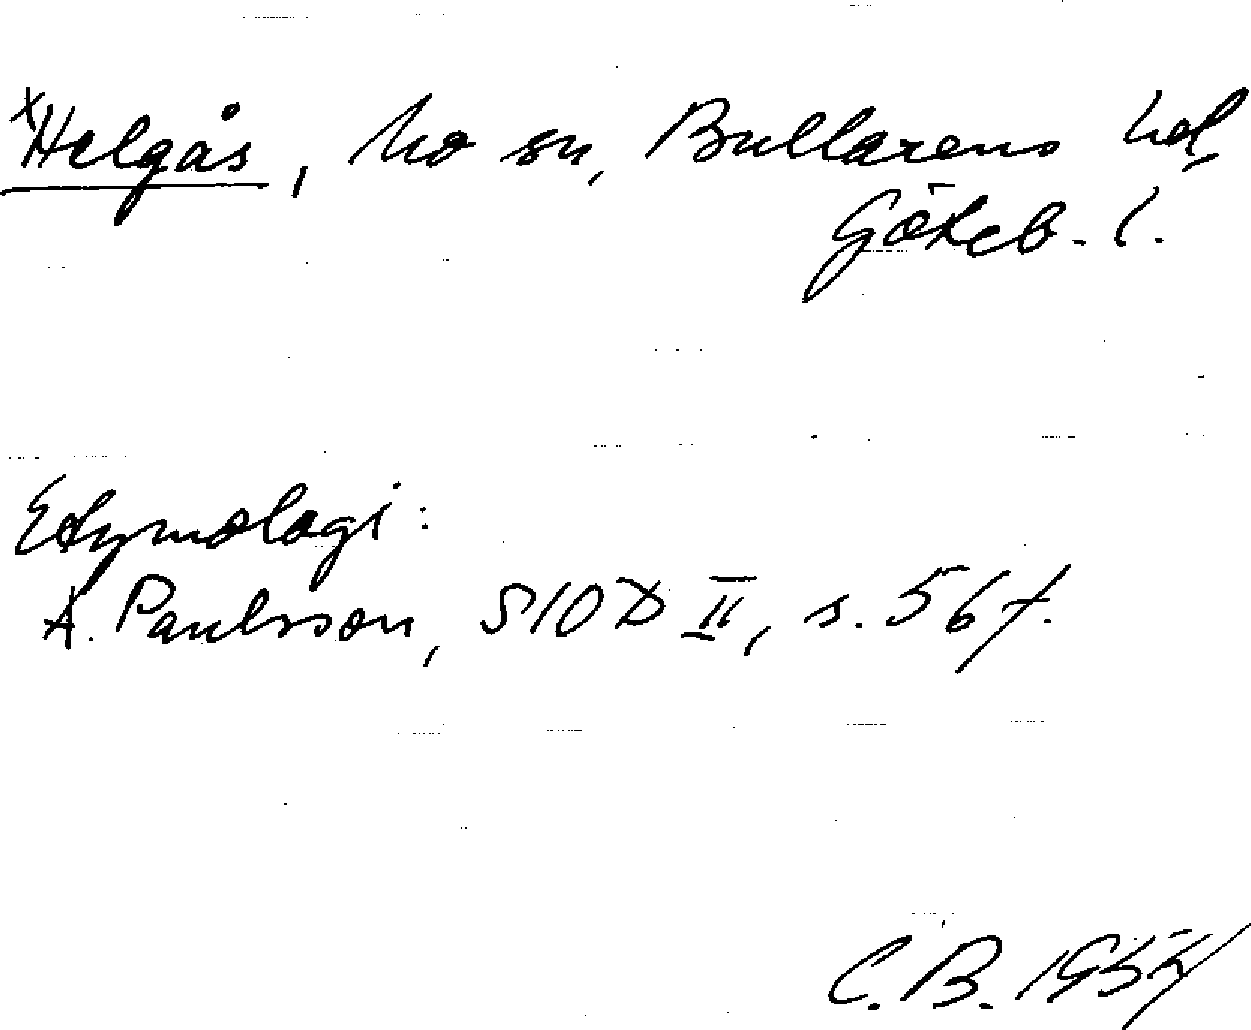 xHelgås, Mo sn, Bullarens hd,
Göteb. l.
Etymologi:
A. Paulsson, SIOD II, s. 56 f.
C.B. 1954